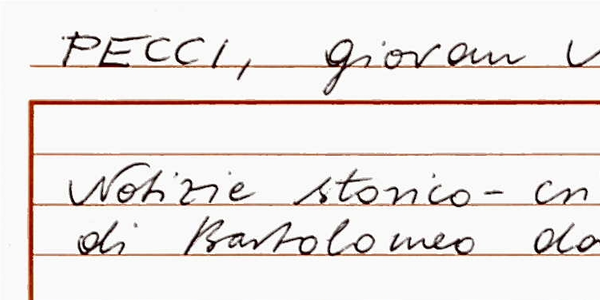 PECCI, giovan
Notizie storico-
di Bartolomeo